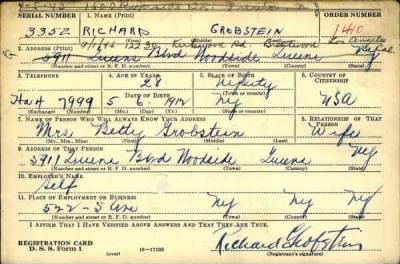 SERIAL NUMBER 1. NAME (Print) ORDER NUMBER
3352 RICHARD GROBSTEIN 1410
(First) (Middle) (Last)
2. ADDRESS (Print)
5911 Queens Blvd Woodside Queens NY
(Number and street or R. F. D. number) (Town) (County) (State)
3. TELEPHONE 4. AGE IN YEARS 5. PLACE OF BIRTH 6. COUNTRY OF CITIZENSHIP
28 NY City
DATE OF BIRTH (Town or county)
Ha 4 7999 5 6 1912 NY USA
(Exchange) (Number) (Mo.) (Day) (Yr.) (State or country)
7. NAME OF PERSON WHO WILL ALWAYS KNOW YOUR ADDRESS 8. RELATIONSHIP OF THAT PERSON
Mrs Betty Grobstein Wife
(Mr., Mrs., Miss) (First) (Middle) (Last)
9. ADDRESS OF THAT PERSON
5911 Queens Blvd Woodside Queens NY
(Number and street or R. F. D. number) (Town) (County) (State)
10. EMPLOYER'S NAME
Self
11. PLACE OF EMPLOYMENT OR BUSINESS
522-5 Ave NY NY NY
(Number and street or R. F. D. number) (Town) (County) (State)
I AFFIRM THAT I HAVE VERIFIED ABOVE ANSWERS AND THAT THEY ARE TRUE.
REGISTRATION CARD
D. S. S. Form 1 (over) 16-17105 Richard Grobstein
(Registrant's signature)